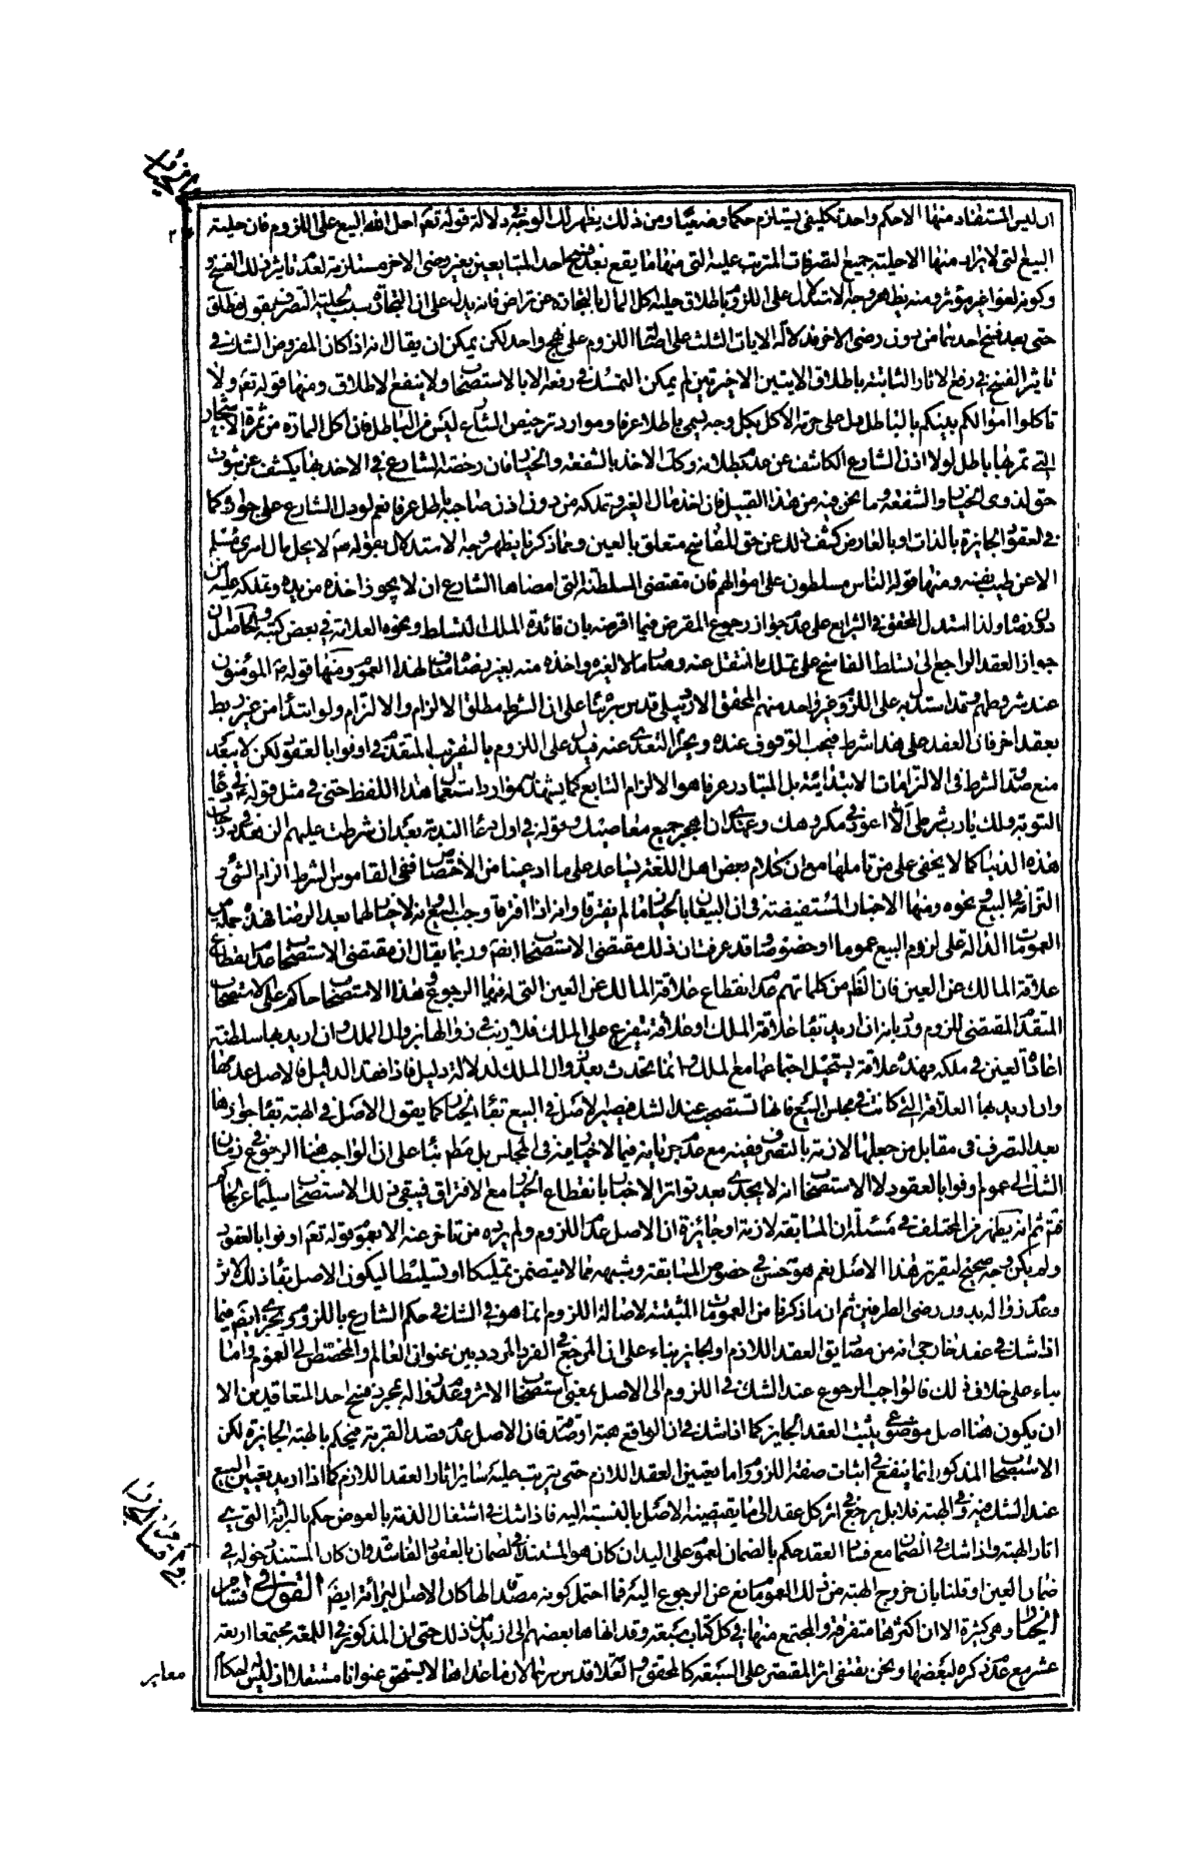 ان ليس المستفاد منها الا حكم واحد تكليفي يستلزم حكما وضعيا ومن ذلك يظهر لك الوجه في دلالة قوله تعم احل الله البيع على اللزوم فان حلية
البيع التي لا يراد منها الا حلية جميع التصرفات المترتب عليه التي منها ما يقع بعد فسخ احد المتبايعين بغير رضى الاخر مستلزمة لعدم تاثير ذلك الفسخ و
وكونه لغوا غير مؤثر ومنه يظهر وجه الاستدلال على اللزوم باطلاق حلية اكل المال بالتجارة عن تراض فانه يدل على ان التجارة سبب لحلية التصرف بقول مطلق
حتى بعد فسخ احدهما من دون رضى الاخر فدلالة الايات الثلث على اصالة اللزوم على نهج واحد لكن يمكن ان يقال انه اذا كان المفروض الشك في
تاثير الفسخ في رفع الاثار الثابتة باطلاق الايتين الاخيرتين لم يمكن التمسك في رفعه الا بالاستصحاب ولا ينفع الاطلاق ومنها قوله تعم ولا
تاكلوا اموالكم بينكم بالباطل دل على حرمة الاكل بكل وجه يسمى باطلا عرفا وموارد ترخيص الشارع ليس من الباطل فان اكل المارة من ثمرة الاشجار
التي تمر بها باطل لولا اذن الشارع الكاشف عن عدم بطلانه وكك الاخذ بالشفعة والخيار فان رخصة الشارع في الاخذ بها يكشف عن ثبوت
حق لذوي الخيار والشفعة وما نحن فيه من هذا القبيل فان اخذ مال الغير وتملكه من دون اذن صاحبه باطل عرفا نعم لو دل الشارع على جوازه كما
في العقود الجايزة بالذات او بالعارض كشف ذلك عن حق للفاسخ متعلق بالعين ومما ذكرنا يظهر وجه الاستدلال بقوله ص لا يحل مال امرئ مسلم
الا عن طيب نفسه ومنها قوله الناس مسلطون على اموالهم فان مقتضى السلطنة التي امضاها الشارع ان لا يجوز اخذه من يده وتملكه عليه من
دون رضاه ولذا استدل المحقق في الشرايع على عدم جواز رجوع المقرض فيما اقرضه بان فائدة الملك التسلط ونحوه العلامة في بعض كتبه والحاصل ان
جواز العقد الراجع الى تسلط الفاسخ على تملك ما انتقل عنه وصار مالا لغيره واخذه منه بغير رضاه مناف لهذا العموم ومنها قوله ص المؤمنون
عند شروطهم وقد استدل به على اللزوم غير واحد منهم المحقق الاردبيلي قدس سره بناء على ان الشرط مطلق الالزام والالتزام ولو ابتداء من غير ربط
بعقد اخر فان العقد على هذا شرط فيجب الوقوف عنده ويحرم التعدي عنه فيدل على اللزوم بالتقريب المتقدم في اوفوا بالعقود لكن لا يبعد
منع صدق الشرط في الالتزامات الابتدائية بل المتبادر عرفا هو الالزام التابع كما يشهد به موارد استعمال هذا اللفظ حتى في مثل قوله ع في دعاء
التوبة ولك يا رب شرطي الا اعود في مكروهك وعهدي ان اهجر جميع معاصيك وقوله في اول دعاء الندبة بعد ان شرطت عليهم الزهد في درجات
هذه الدنيا كما لا يخفى على من تاملها مع ان كلام بعض اهل اللغة يساعد على ما ادعينا من الاختصاص ففي القاموس الشرط الزام الشيء و
التزامه في البيع ونحوه ومنها الاخبار المستفيضة في ان البيعان بالخيار ما لم يفترقا وانه اذا افترقا وجب البيع وانه لا خيار لهما بعد الرضا فهذه جملة من
العمومات الدالة على لزوم البيع عموما او خصوصا وقد عرفت ان ذلك مقتضى الاستصحاب ايضا وربما يقال ان مقتضى الاستصحاب عدم انقطاع
علاقة المالك عن العين فان الظاهر من كلماتهم عدم انقطاع علاقة المالك عن العين التي له فيها الرجوع وهذا الاستصحاب حاكم على الاستصحاب
المتقدم المقتضي للزوم ورد بانه ان اريد بقاء علاقة الملك او علاقة تتفرع على الملك فلا ريب في زوالها بزوال الملك وان اريد بها سلطنة
اعادة العين في ملكه فهذه علاقة يستحيل اجتماعها مع الملك وانما تحدث بعد زوال الملك لدلالة دليل فاذا فقد الدليل فالاصل عدمها
وان اريد بها العلاقة التي كانت في مجلس البيع فانها تستصحب عند الشك فيصير الاصل في البيع بقاء الخيار كما يقول الاصل في الهبة بقاء جوازها
بعد التصرف في مقابل من جعلها لازمة بالتصرف ففيه مع عدم جريانه فيما لا خيار فيه في المجلس بل مطم بناء على ان الواجب هنا الرجوع في زمان
الشك الى عموم اوفوا بالعقود لا الاستصحاب انه لا يجدي بعد تواتر الاخبار بانقطاع الخيار مع الافتراق فيبقى ذلك الاستصحاب سليما عن الحاكم
فتم ثم انه يظهر من المختلف في مسئلة ان المسابقة لازمة او جائزة ان الاصل عدم اللزوم ولم يرده من تاخر عنه الا بعموم قوله تعم اوفوا بالعقود
ولم يكن وجه صحيح لتقرير هذا الاصل نعم هو حسن في خصوص المسابقة وشبهه مما لا يتضمن تمليكا او تسليطا ليكون الاصل بقاء ذلك الاثر
وعدم زواله بدون رضى الطرفين ثم ان ما ذكرنا من العمومات المثبتة لاصالة اللزوم انما هو في الشك في حكم الشارع باللزوم ويجري ايضا فيما
اذا شك في عقد خارجي انه من مصاديق العقد اللازم او الجايز بناء على ان المرجع في الفرد المردد بين عنواني العام والمخصص الى العموم واما
بناء على خلاف ذلك فالواجب الرجوع عند الشك في اللزوم الى الاصل بمعنى استصحاب الاثر وعدم زواله بمجرد فسخ احد المتعاقدين الا
ان يكون هنا اصل موضوعي يثبت العقد الجايز كما اذا شك في ان الواقع هبة او صدقة فان الاصل عدم قصد القربة فيحكم بالهبة الجائزة لكن
الاستصحاب المذكور انما ينفع في اثبات صفة اللزوم واما تعيين العقد اللازم حتى يترتب عليه سائر اثار العقد اللازم كما اذا اريد تعيين البيع
عند الشك فيه وفي الهبة فلا بل يرجع في اثر كل عقد الى ما يقتضيه الاصل بالنسبة اليه فاذا شك في اشتغال الذمة بالعوض حكم بالبرائة التي هي
اثار الهبة واذا شك في الضمان مع فساد العقد حكم بالضمان لعموم على اليد ان كان هو المستند في الضمان بالعقود الفاسدة وان كان المستند دخوله في
ضمان العين او قلنا بان خروج الهبة من ذلك العموم مانع عن الرجوع اليه فيما احتمل كونه مصداقا لها كان الاصل البرائة ايضا القول في اقسام
الخيار وهي كثيرة الا ان اكثرها متفرقة والمجتمع منها في كل كتاب سبعة وقد انهاها بعضهم الى ازيد من ذلك حتى ان المذكور في اللمعة مجتمعا اربعة
عشر مع عدم ذكره لبعضها ونحن نقتفي اثر المقتصر على السبعة كالمحقق والعلامة قدس سرهما لان ما عداها لا يستحق عنوانا مستقلا اذ ليس له احكام
مغايرة